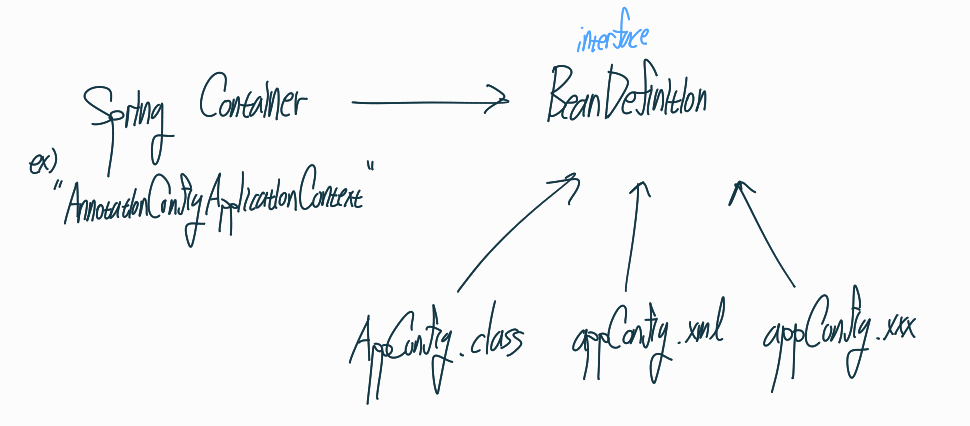 interface
Spring Container
BeanDefinition
ex)
"AnnotationConfigApplicationContext"
AppConfig.class
appConfig.xml
appConfig.xxx